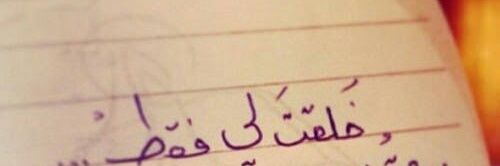 خَلقتَ لي فقط ...